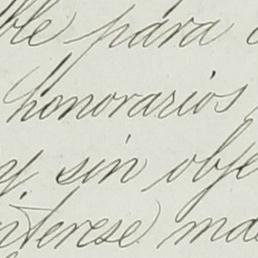 ble para
honorarios
y. sin obje
nterese mas